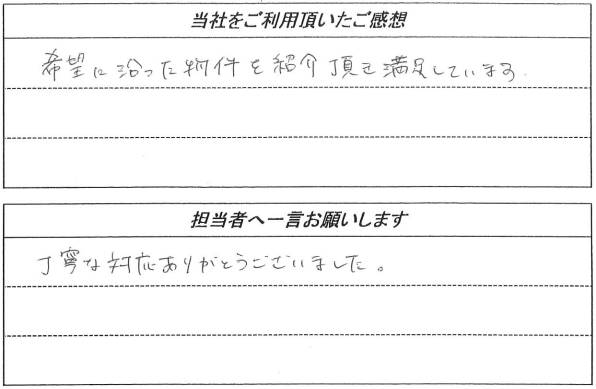 当社をご利用頂いたご感想
希望に沿った物件を紹介頂き満足しています。
担当者へ一言お願いします
丁寧な対応ありがとうございました。